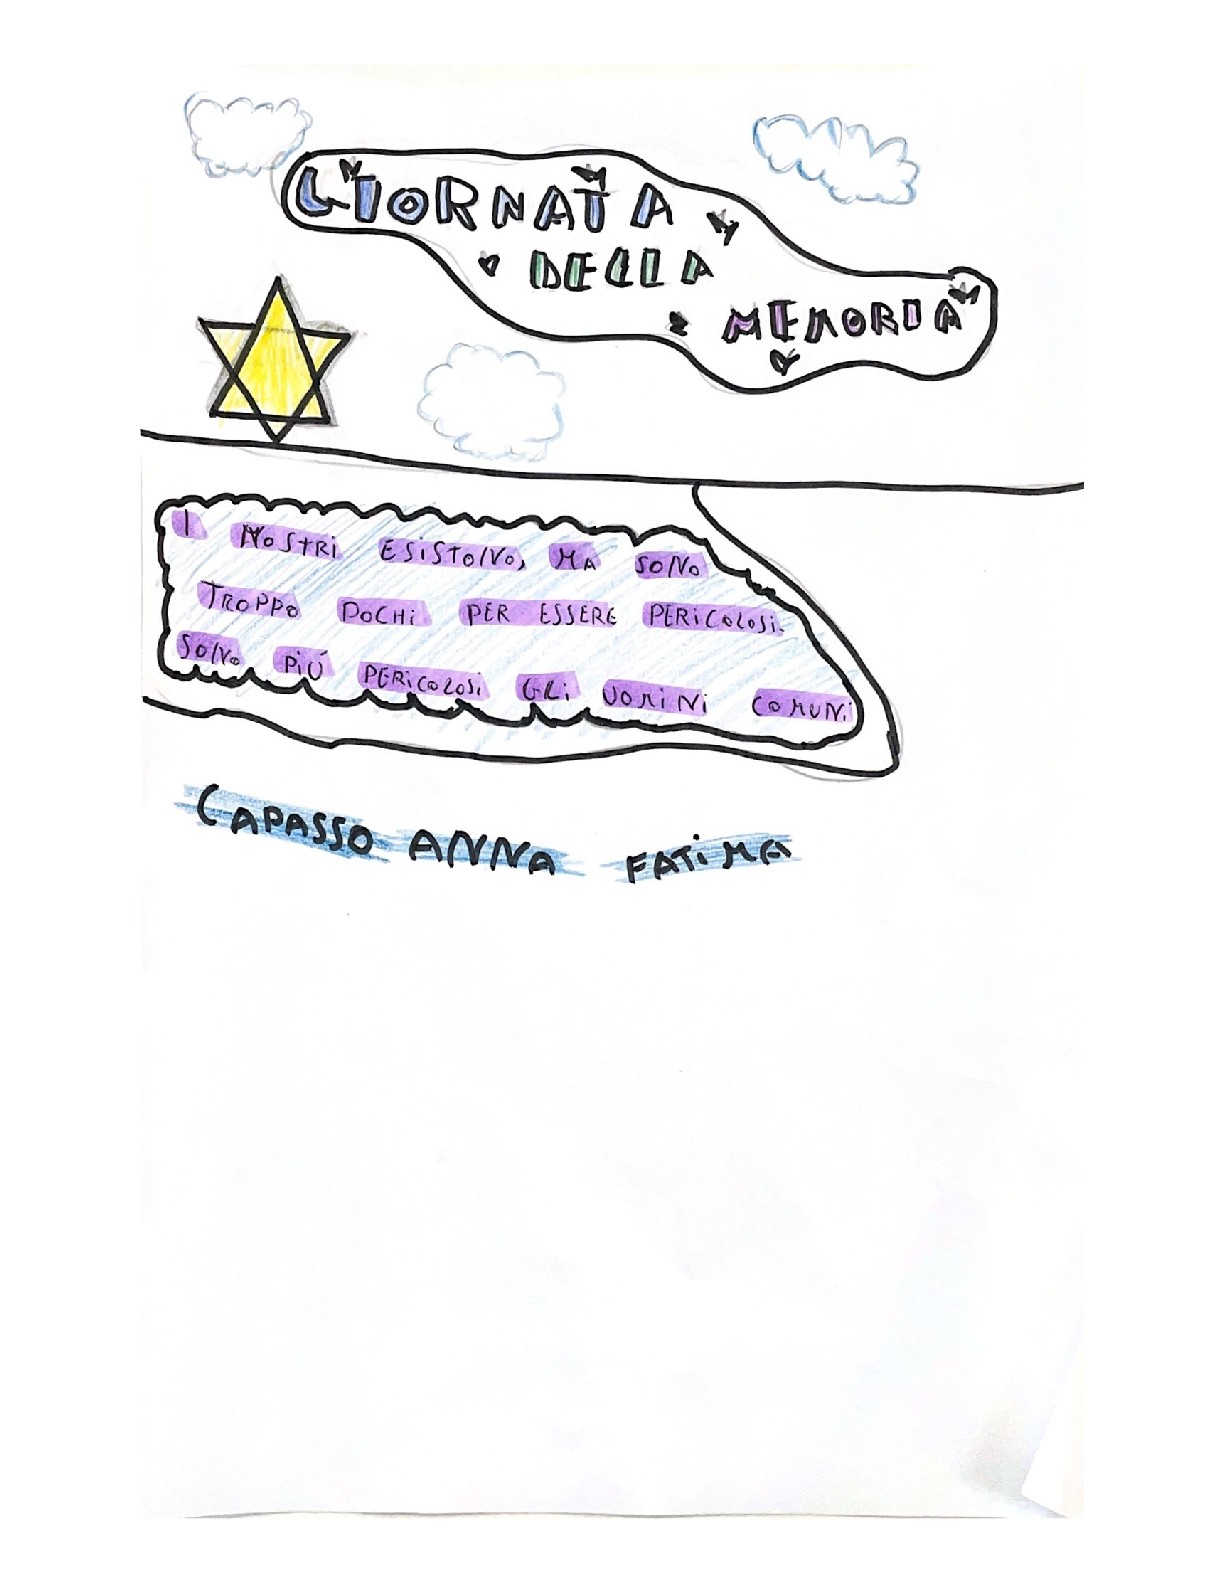 GIORNATA
DELLA
MEMORIA
I NOSTRI ESISTONO, MA SONO
TROPPO POCHI PER ESSERE PERICOLOSI.
SONO PIÚ PERICOLOSI GLI UOMINI COMUNI
CAPASSO ANNA FATIMA